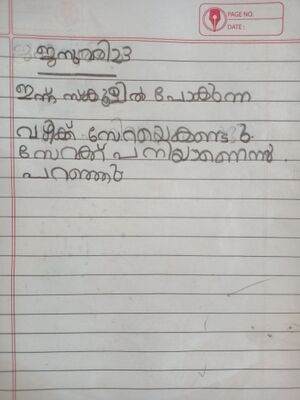 PAGE NO.
DATE :
ജനുവരി 23
ഇന്ന് സ്കൂളിൽ പോകുന്ന
വഴിക്ക് സേറയെ കണ്ടു.
സേറക്ക് പനിയാണെന്ന്
പറഞ്ഞു